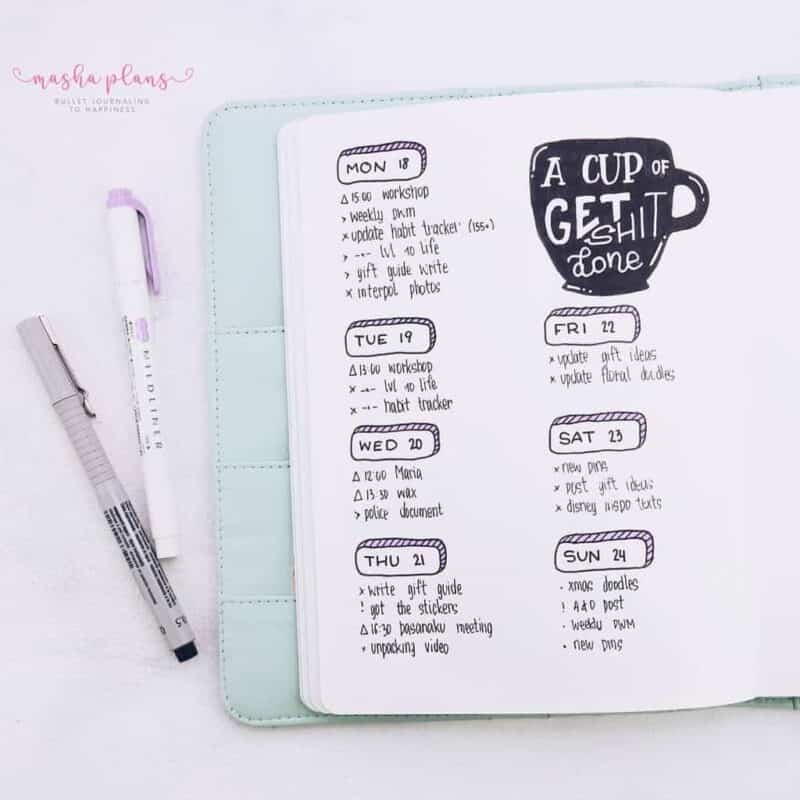 masha plans
BULLET JOURNALING
TO HAPPINESS
MILDLINER
0.5
MON 18
Δ 15:00 workshop
> weekly PWM
× update habit tracker (155+)
> -"- lvl 10 life
> gift guide write
× interpol photos
TUE 19
Δ 13:00 workshop
× -"- lvl 10 life
× -"- habit tracker
WED 20
Δ 12:00 Maria
Δ 13:30 wax
> police document
THU 21
× write gift guide
! got the stickers
Δ 16:30 basanaku meeting
× unpacking video
A CUP OF
GET
SHIT
done
FRI 22
× update gift ideas
× update floral doodles
SAT 23
× new pins
× post gift ideas
× disney inspo texts
SUN 24
· xmas doodles
! A&D post
· weekly PWM
· new pins